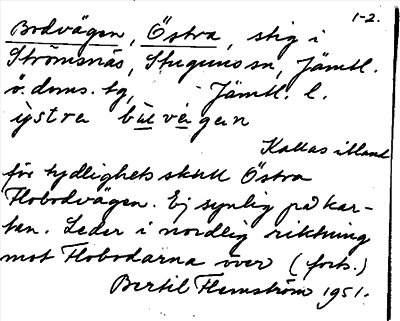 1-2.
Bodvägen, Östra, stig i
Strömsnäs, Stuguns sn, Jämtl.
ö. doms. tg, Jämtl. l.
ỳstra bùl vègan
Kallas ibland
för tydlighets skull Östra
Flobodvägen. Ej synlig på kar-
tan. Leder i nordlig riktning
mot Flobodarna över (forts.)
Bertil Flemström 1951.